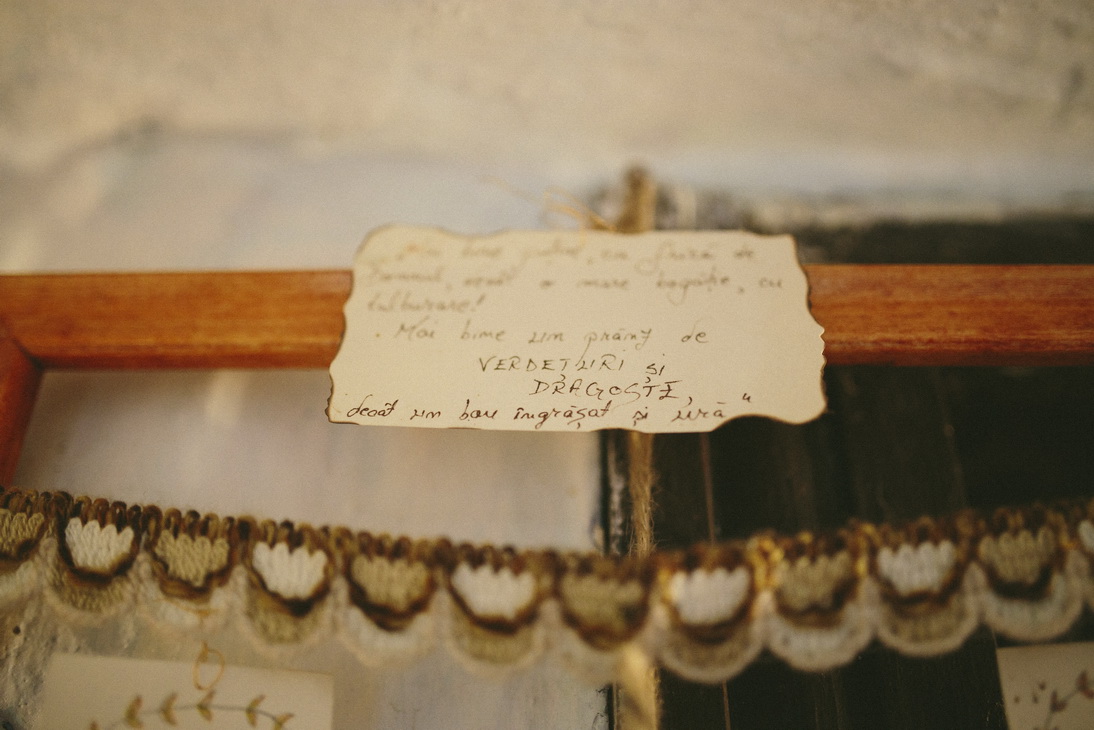 „Mai bine puțin, cu frică de
Domnul, decât o mare bogăție, cu
tulburare!
. Mai bine un prânz de
VERDEȚURI și
DRAGOSTE,
decât un bou îngrășat și ură"